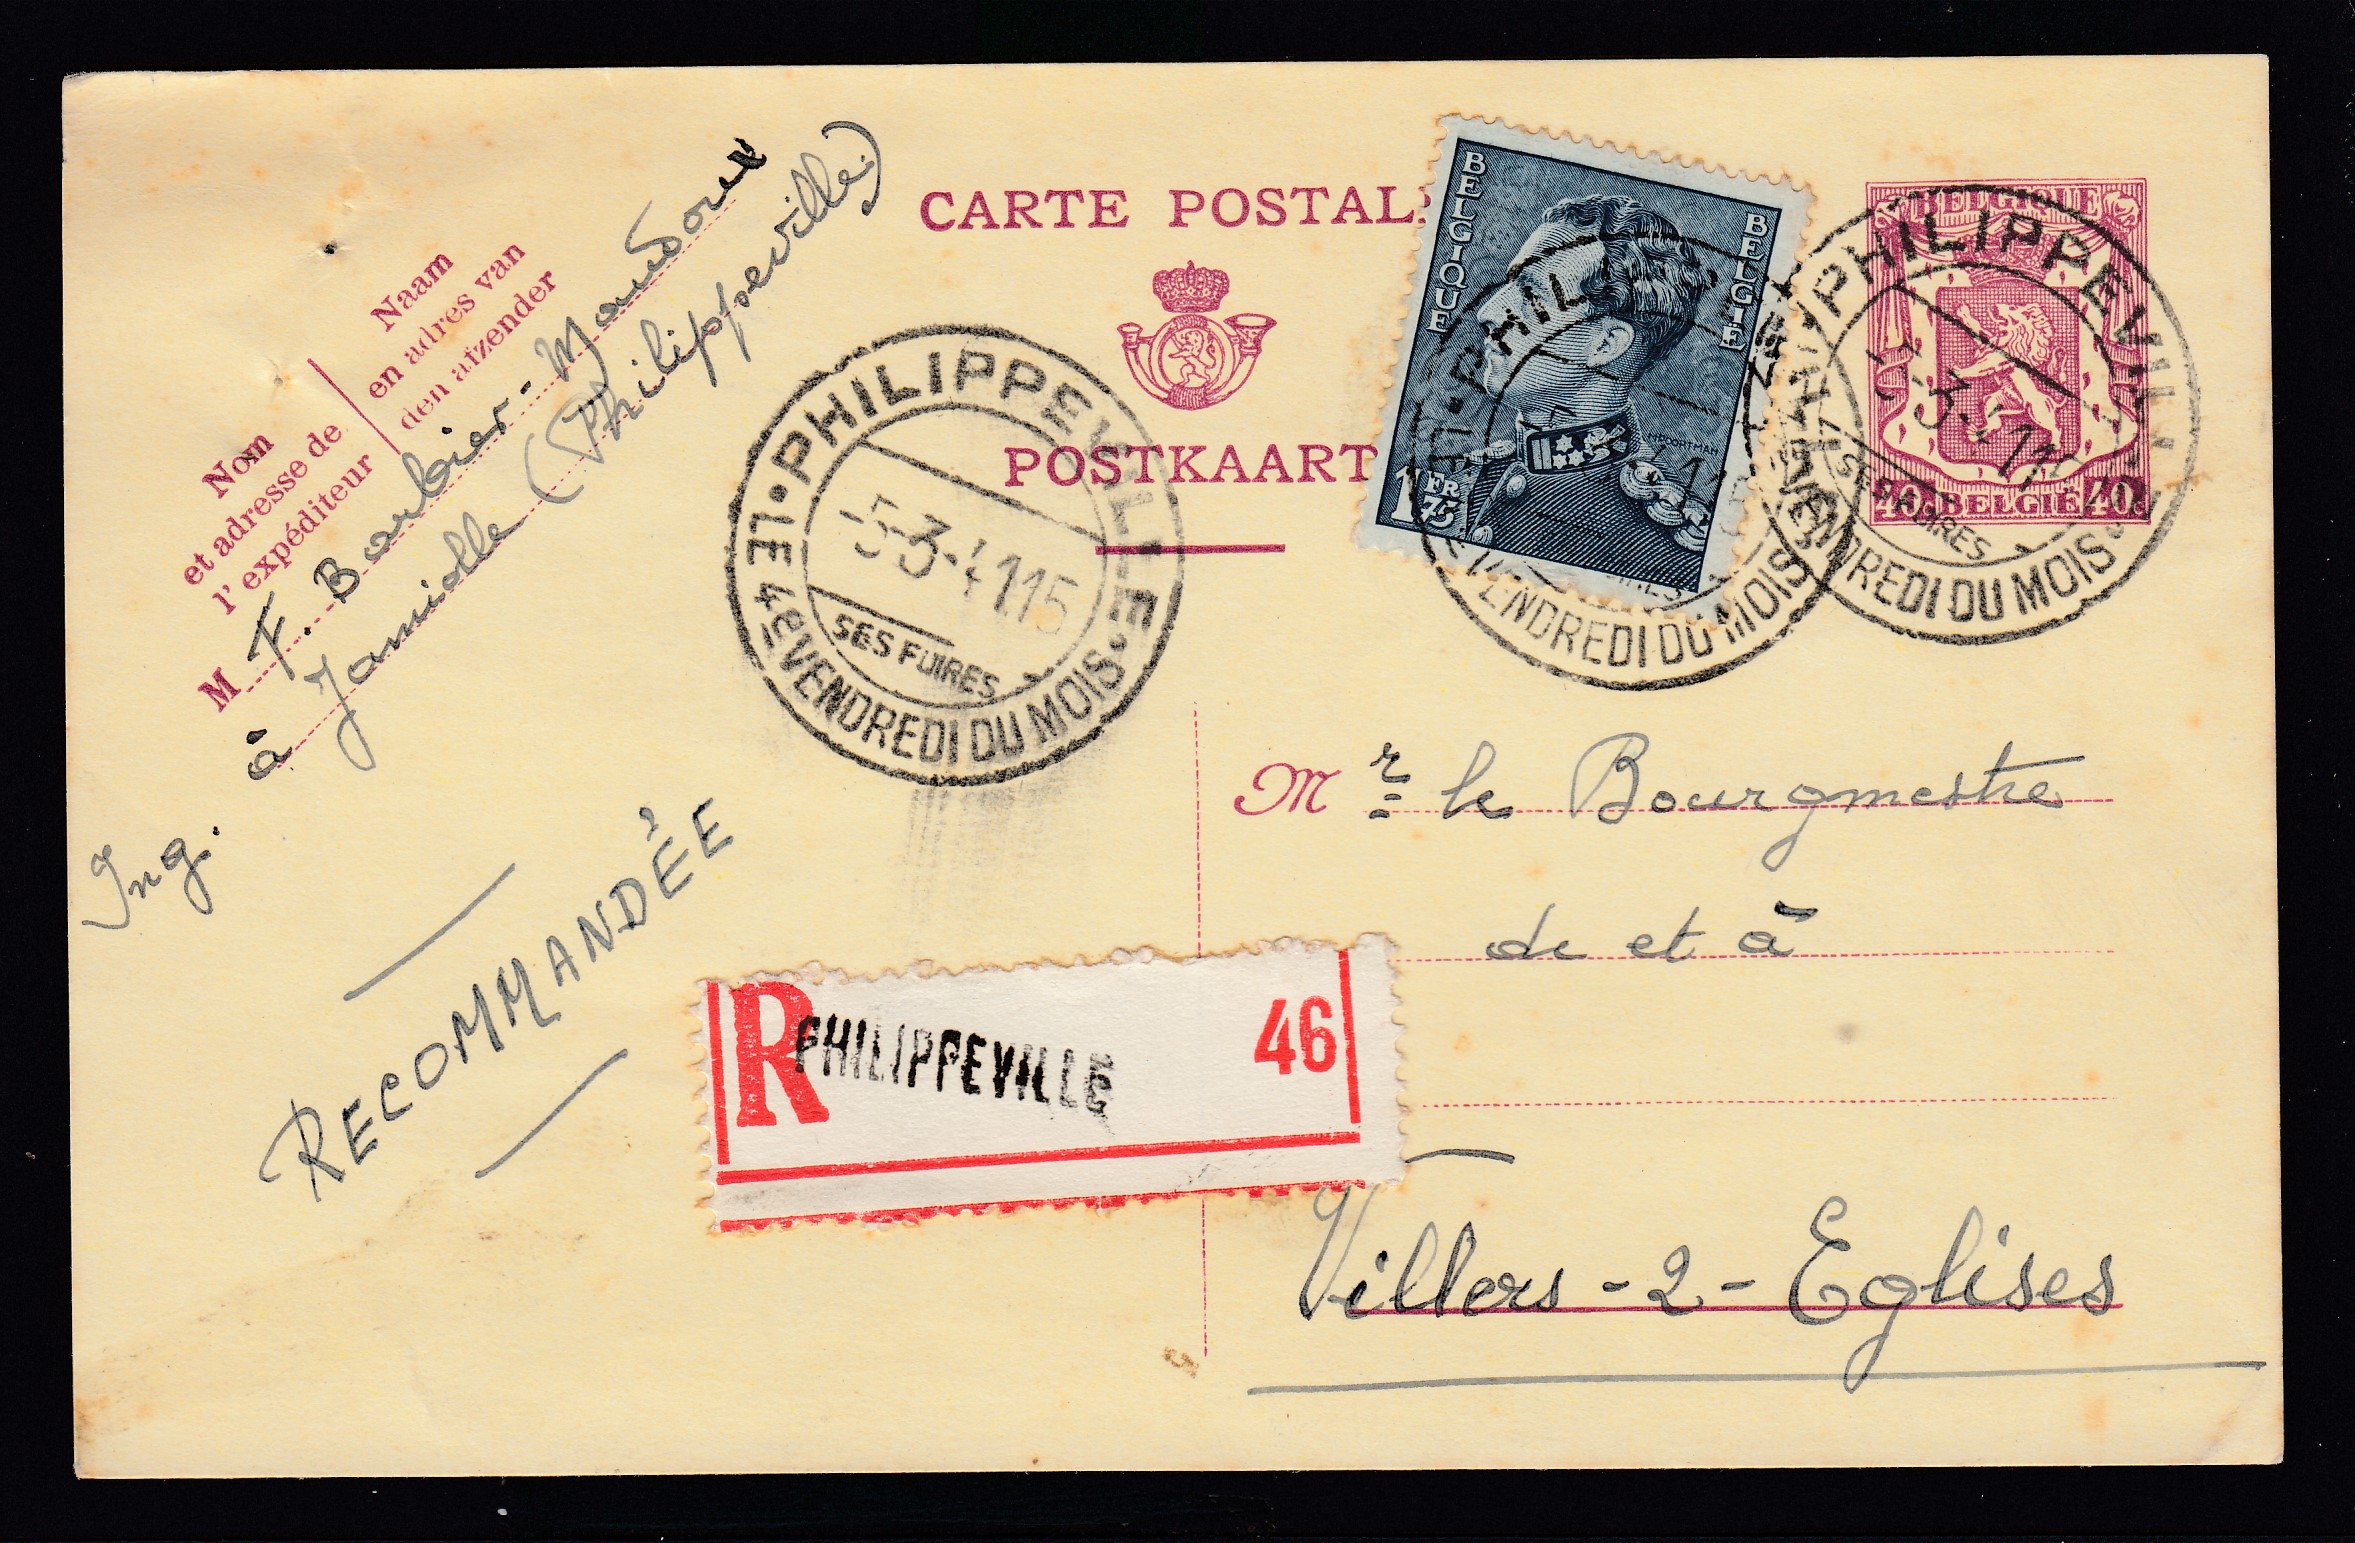 Naam
en adres van
den afzender
Nom
et adresse de
l'expéditeur
M F. Barbier-
à Jamiolle (Philippeville)
Ing.
RECOMMANDÉE
CARTE POSTAL
POSTKAART
BELGIQUE
BELGIE
1 FR 75
BELGIQUE
40 BELGIE 40
PHILIPPEVILLE
-5-3-41 15
SES FOIRES
LE 4e VENDREDI DU MOIS
PHILIPPEV
SES FOIRES
VENDREDI DU MOIS
PHIL
VENDREDI DU MOIS
R PHILIPPEVILLE 46
Mr le Bourgmestre
de et à
Villers-2-Eglises